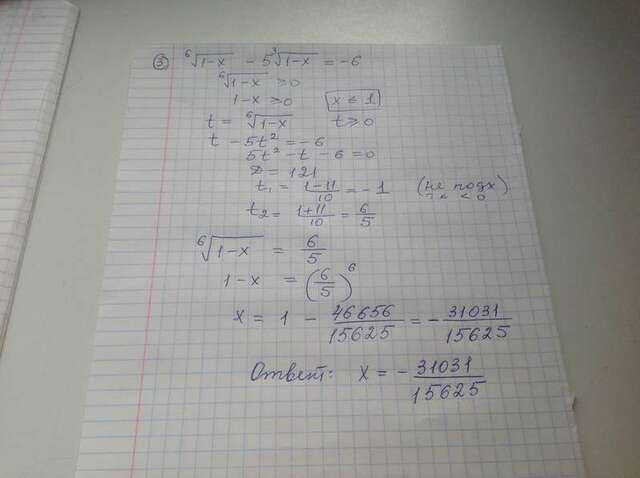 ③ ⁶√(1-x) - 5 ³√(1-x) = -6
⁶√(1-x) ≥ 0
1-x ≥ 0 x ≤ 1
t = ⁶√(1-x) t ≥ 0
t - 5t² = -6
5t² - t - 6 = 0
D = 121
t₁ = (1-11)/10 = -1 (не подх)
t₂ = (1+11)/10 = 6/5
⁶√(1-x) = 6/5
1-x = (6/5)⁶
x = 1 - 46656/15625 = -31031/15625
Ответ: x = -31031/15625